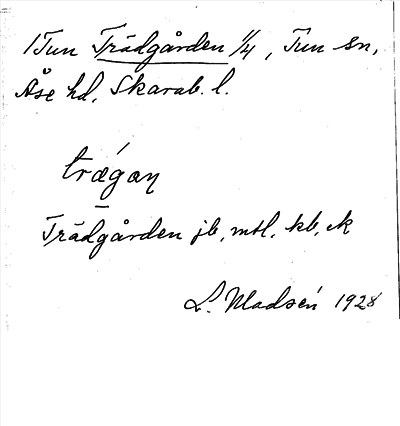 1 Tun Trädgården 1/4, Tun sn,
Åse hd, Skarab. l.
trǽgan
Trädgården jb, mtl, kb, ek
L. Madsén 1928